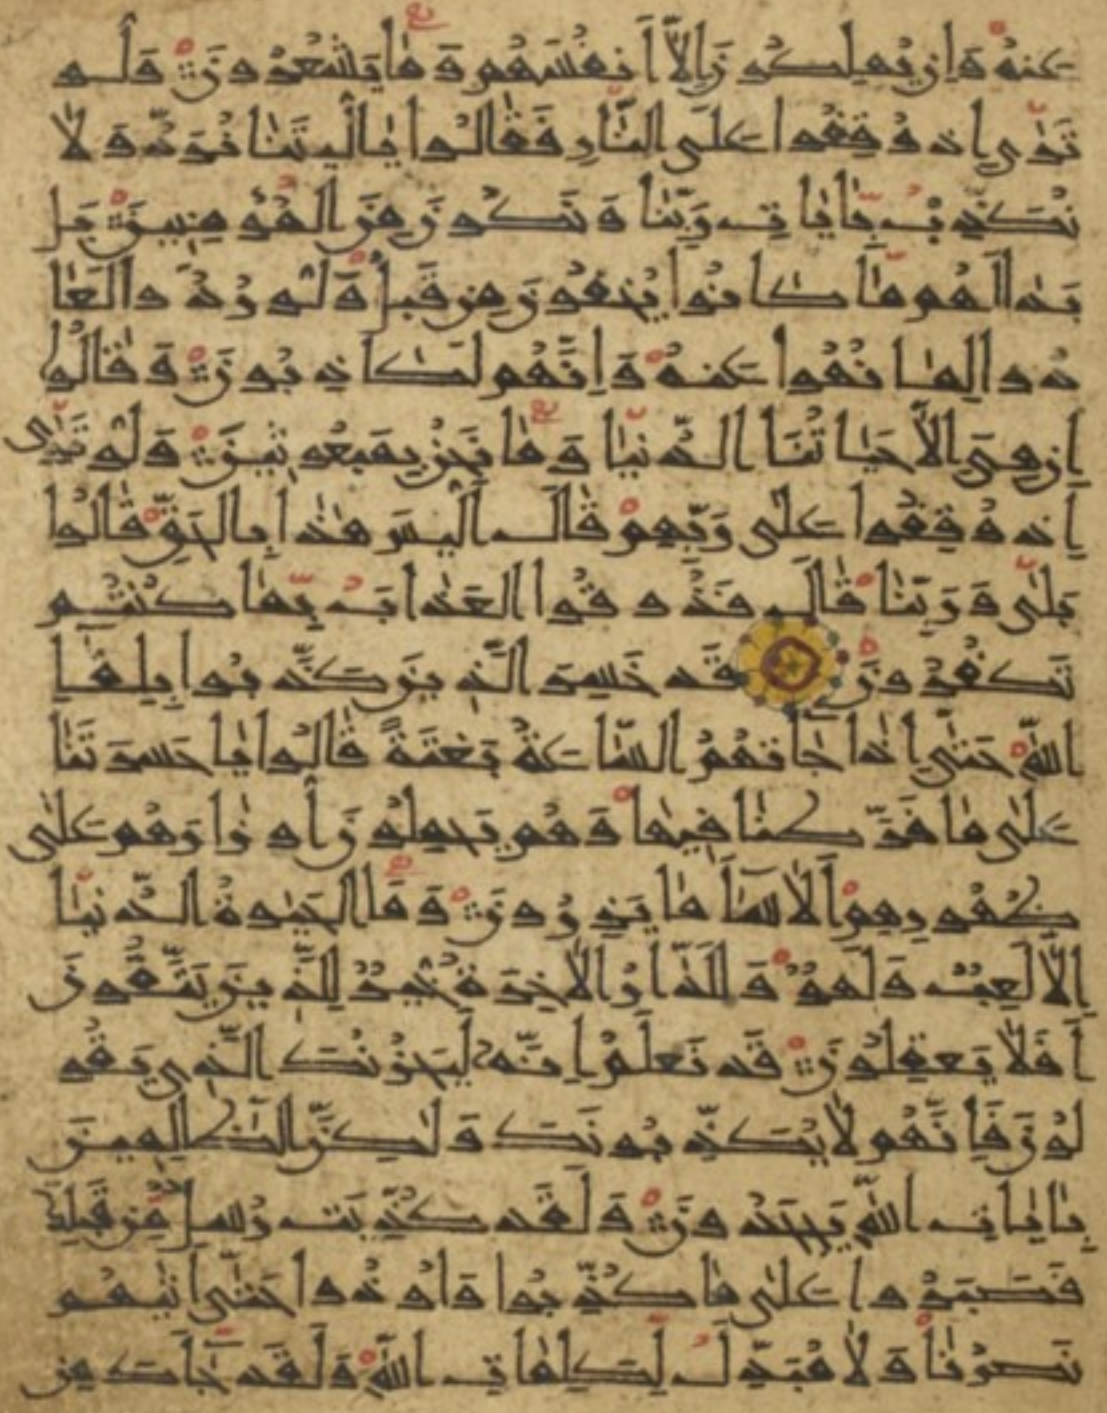 عَنهُ وَاِن يُهلِكُونَ اِلَّا اَنفُسَهُم وَمَا يَشعُرُونَ وَلَو
تَرٰى اِذ وُقِفُوا عَلَى النَّارِ فَقَالُوا يٰا لَيتَنَا نُرَدُّ وَلَا
نُكَذِّبُ بِاٰيَاتِ رَبِّنَا وَنَكُونَ مِنَ المُؤمِنِينَ بَل
بَدَا لَهُم مَا كَانُوا يُخفُونَ مِن قَبلُ وَلَو رُدُّوا لَعَا
دُوا لِمَا نُهُوا عَنهُ وَاِنَّهُم لَكَاذِبُونَ وَقَالُوا
اِن هِىَ اِلَّا حَيَاتُنَا الدُّنيَا وَمَا نَحنُ بِمَبعُوثِينَ وَلَو تَرٰى
اِذ وُقِفُوا عَلٰى رَبِّهِم قَالَ اَلَيسَ هٰذَا بِالحَقِّ قَالُوا
بَلٰى وَرَبِّنَا قَالَ فَذُوقُوا العَذَابَ بِمَا كُنتُم
تَكفُرُونَ قَد خَسِرَ الَّذِينَ كَذَّبُوا بِلِقَاءِ
اللّٰهِ حَتّٰى اِذَا جَاءَتهُمُ السَّاعَةُ بَغتَةً قَالُوا يَا حَسرَتَنَا
عَلٰى مَا فَرَّطنَا فِيهَا وَهُم يَحمِلُونَ اَوزَارَهُم عَلٰى
ظُهُورِهِم اَلَا سَاءَ مَا يَزِرُونَ وَمَا الحَيٰوةُ الدُّنيَا
اِلَّا لَعِبٌ وَلَهوٌ وَلَلدَّارُ الاٰخِرَةُ خَيرٌ لِلَّذِينَ يَتَّقُونَ
اَفَلَا يَعقِلُونَ قَد نَعلَمُ اِنَّهُ لَيَحزُنُكَ الَّذِى يَقُو
لُونَ فَاِنَّهُم لَا يُكَذِّبُونَكَ وَلٰكِنَّ الظَّالِمِينَ
بِاٰيَاتِ اللّٰهِ يَجحَدُونَ وَلَقَد كُذِّبَت رُسُلٌ مِن قَبلِكَ
فَصَبَرُوا عَلٰى مَا كُذِّبُوا وَاُوذُوا حَتّٰى اَتٰيهُم
نَصرُنَا وَلَا مُبَدِّلَ لِكَلِمَاتِ اللّٰهِ وَلَقَد جَاءَكَ مِن